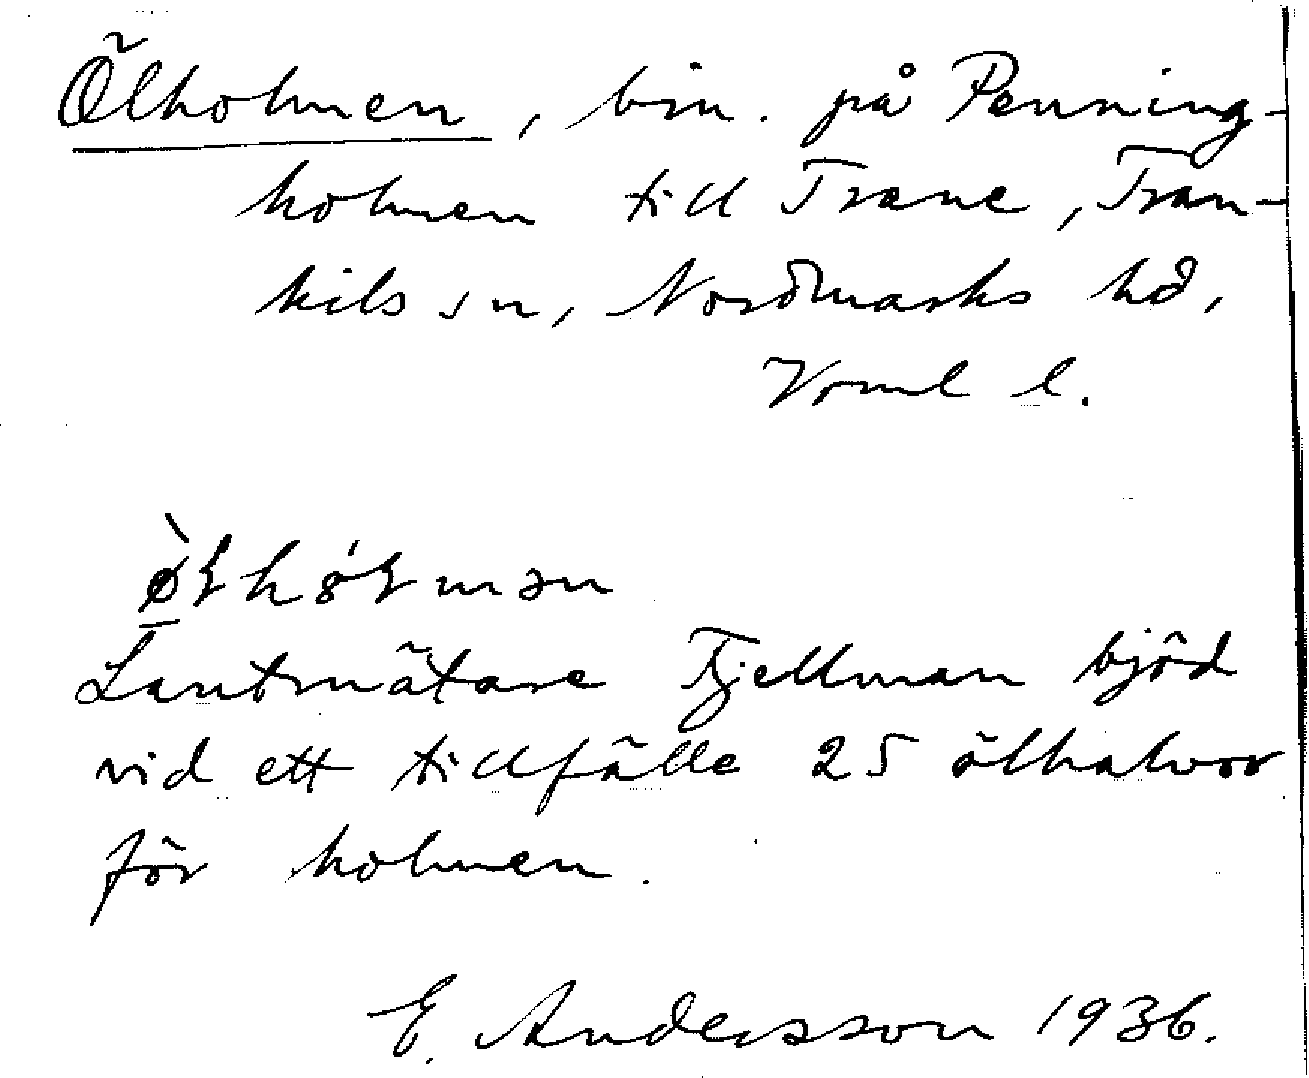 Ölholmen, bin. på Penning-
holmen till Trane, Tran-
kils sn, Nordmarks hd,
Vrml l.
Lantmätare Fjellman bjöd
vid ett tillfälle 25 ölhalvor
för holmen.
E. Andersson 1936.